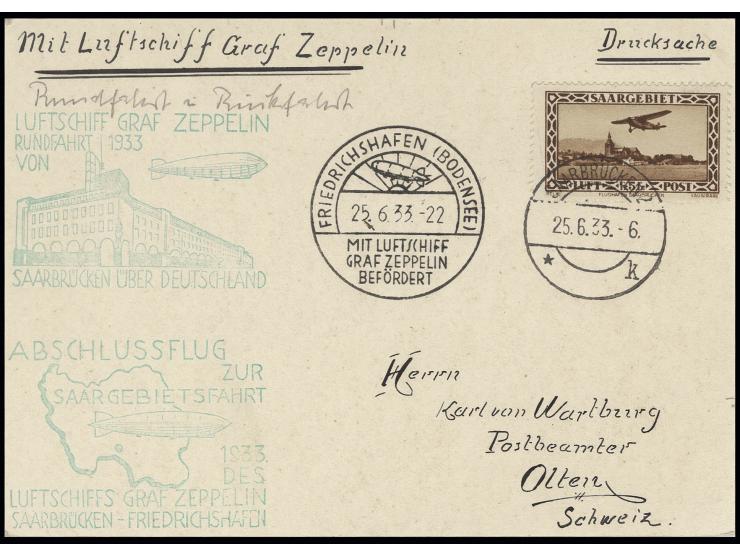 Mit Luftschiff Graf Zeppelin
Drucksache
Rundfahrt u Rückfahrt
LUFTSCHIFF GRAF ZEPPELIN
RUNDFAHRT 1933
VON
SAARBRÜCKEN ÜBER DEUTSCHLAND
FRIEDRICHSHAFEN (BODENSEE)
25.6.33.-22
MIT LUFTSCHIFF
GRAF ZEPPELIN
BEFÖRDERT
SAARGEBIET
LUFT POST
SAARBRÜCKEN 2
25.6.33.-6.
* k
ABSCHLUSSFLUG
ZUR
SAARGEBIETSFAHRT
1933
DES
LUFTSCHIFFS GRAF ZEPPELIN
SAARBRÜCKEN - FRIEDRICHSHAFEN
Herrn
Karl von Wartburg
Postbeamter
Olten
Schweiz.